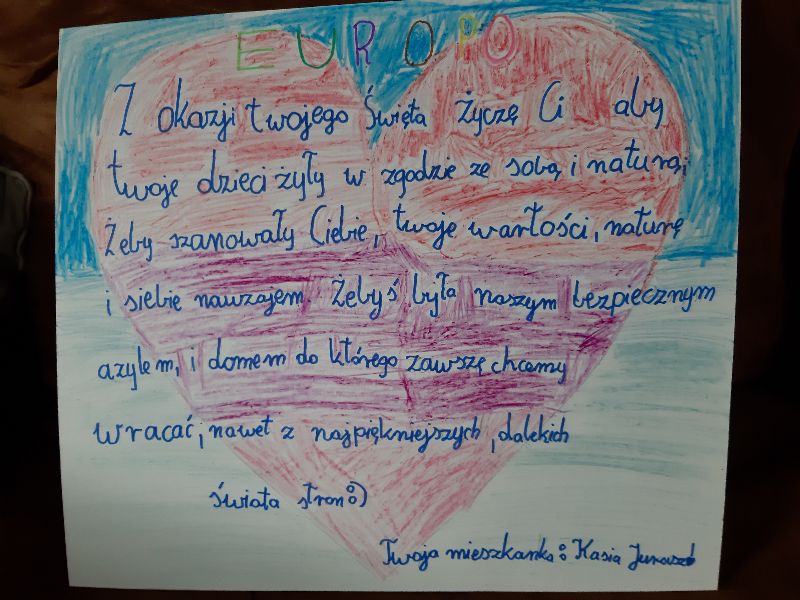 EUROPO
Z okazji twojego Święta życzę Ci aby
twoje dzieci żyły w zgodzie ze sobą i naturą,
Żeby szanowały Ciebie, twoje wartości, naturę
i siebie nawzajem. Żebyś była naszym bezpiecznym
azylem, i domem do którego zawszę chcemy
wracać, nawet z najpiękniejszych, dalekich
świata stron :)
Twoja mieszkanka: Kasia